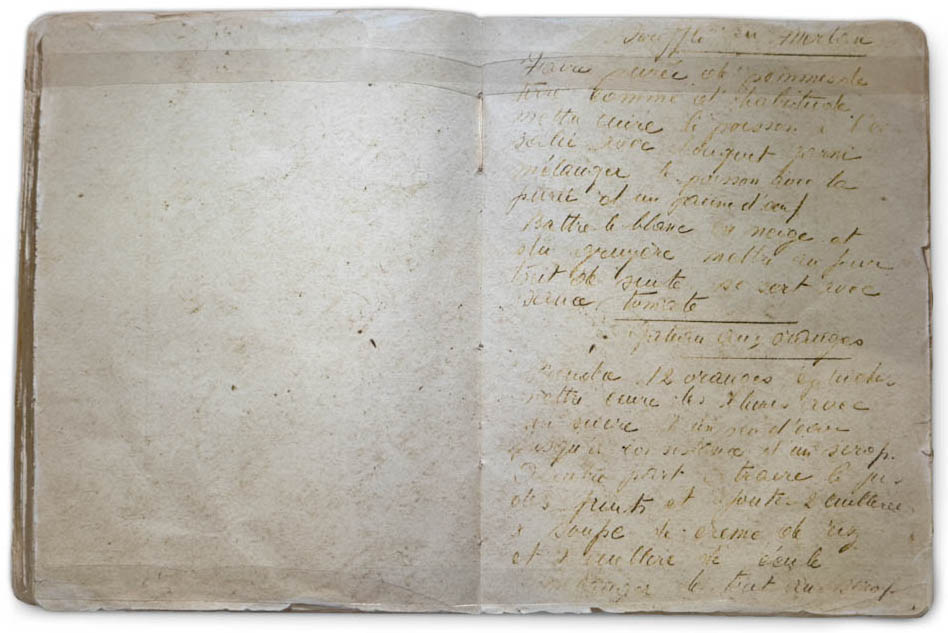 Soufflé au Merlan
Faire purée de pommes de
terre comme d'habitude
mettre cuire le poisson à l'eau
salée avec bouquet garni
mélanger le poisson avec la
purée et un jaune d'œuf
Battre le blanc en neige et
du gruyère mettre au four
tout de suite se sert avec
sauce tomate
aux oranges
Prendre 12 oranges
mettre cuire les avec
du sucre et un peu d'eau
jusqu'à consistence d'un sirop.
D'autre part extraire le jus
des fruits et ajouter 2 cuillerées
à soupe de crème de riz
et cuillere de fécule
mélanger le tout au sirop